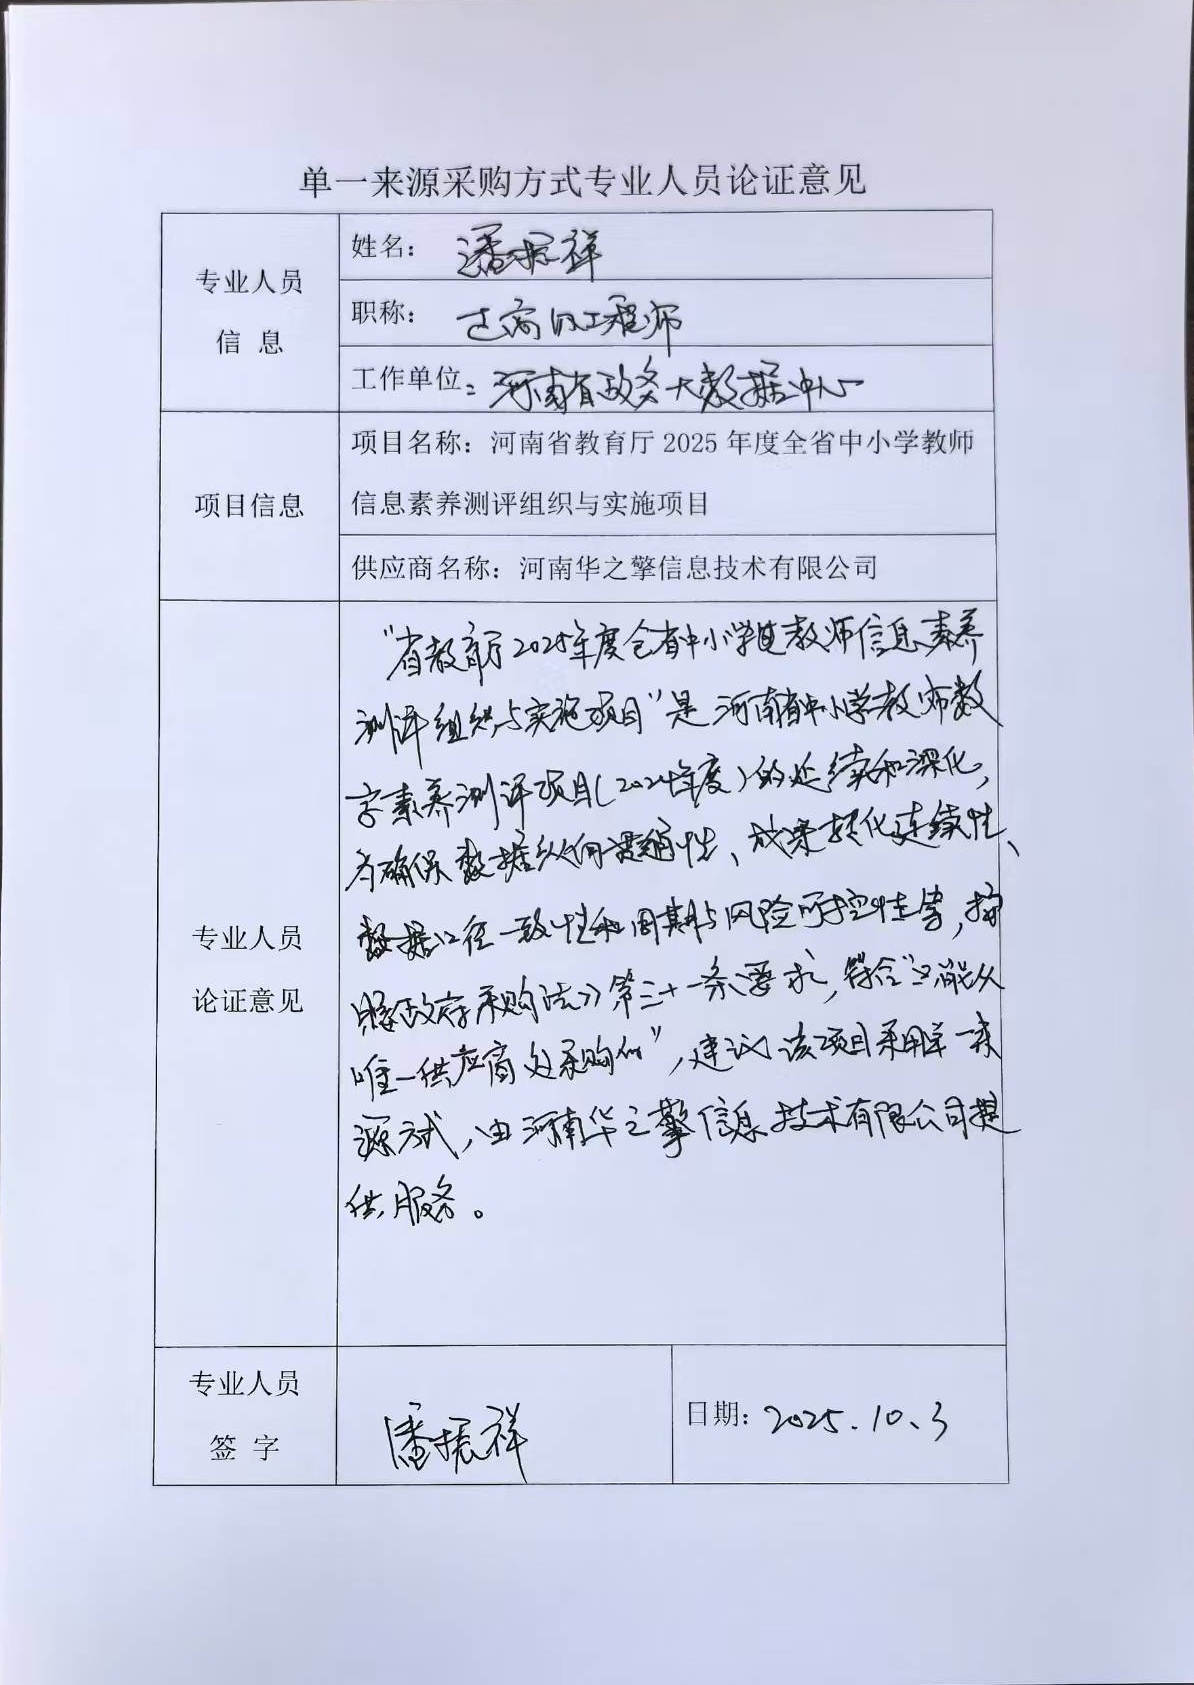 单一来源采购方式专业人员论证意见
专业人员
信 息
姓名：潘振祥
职称：正高级工程师
工作单位：河南省政务大数据中心
项目信息
项目名称：河南省教育厅 2025 年度全省中小学教师
信息素养测评组织与实施项目
供应商名称：河南华之擎信息技术有限公司
专业人员
论证意见
“省教育厅2025年度全省中小学教师信息素养
测评组织与实施项目”是河南省中小学教师数
字素养测评项目(2024年度)的延续和深化，
为确保数据纵向贯通性、成果转化连续性、
数据口径一致性和周期与风险可控性等，按
照《政府采购法》第三十一条要求，符合“只能从
唯一供应商处采购的”，建议该项目采用单一来
源方式，由河南华之擎信息技术有限公司提
供服务。
专业人员
签 字
潘振祥
日期：2025.10.3